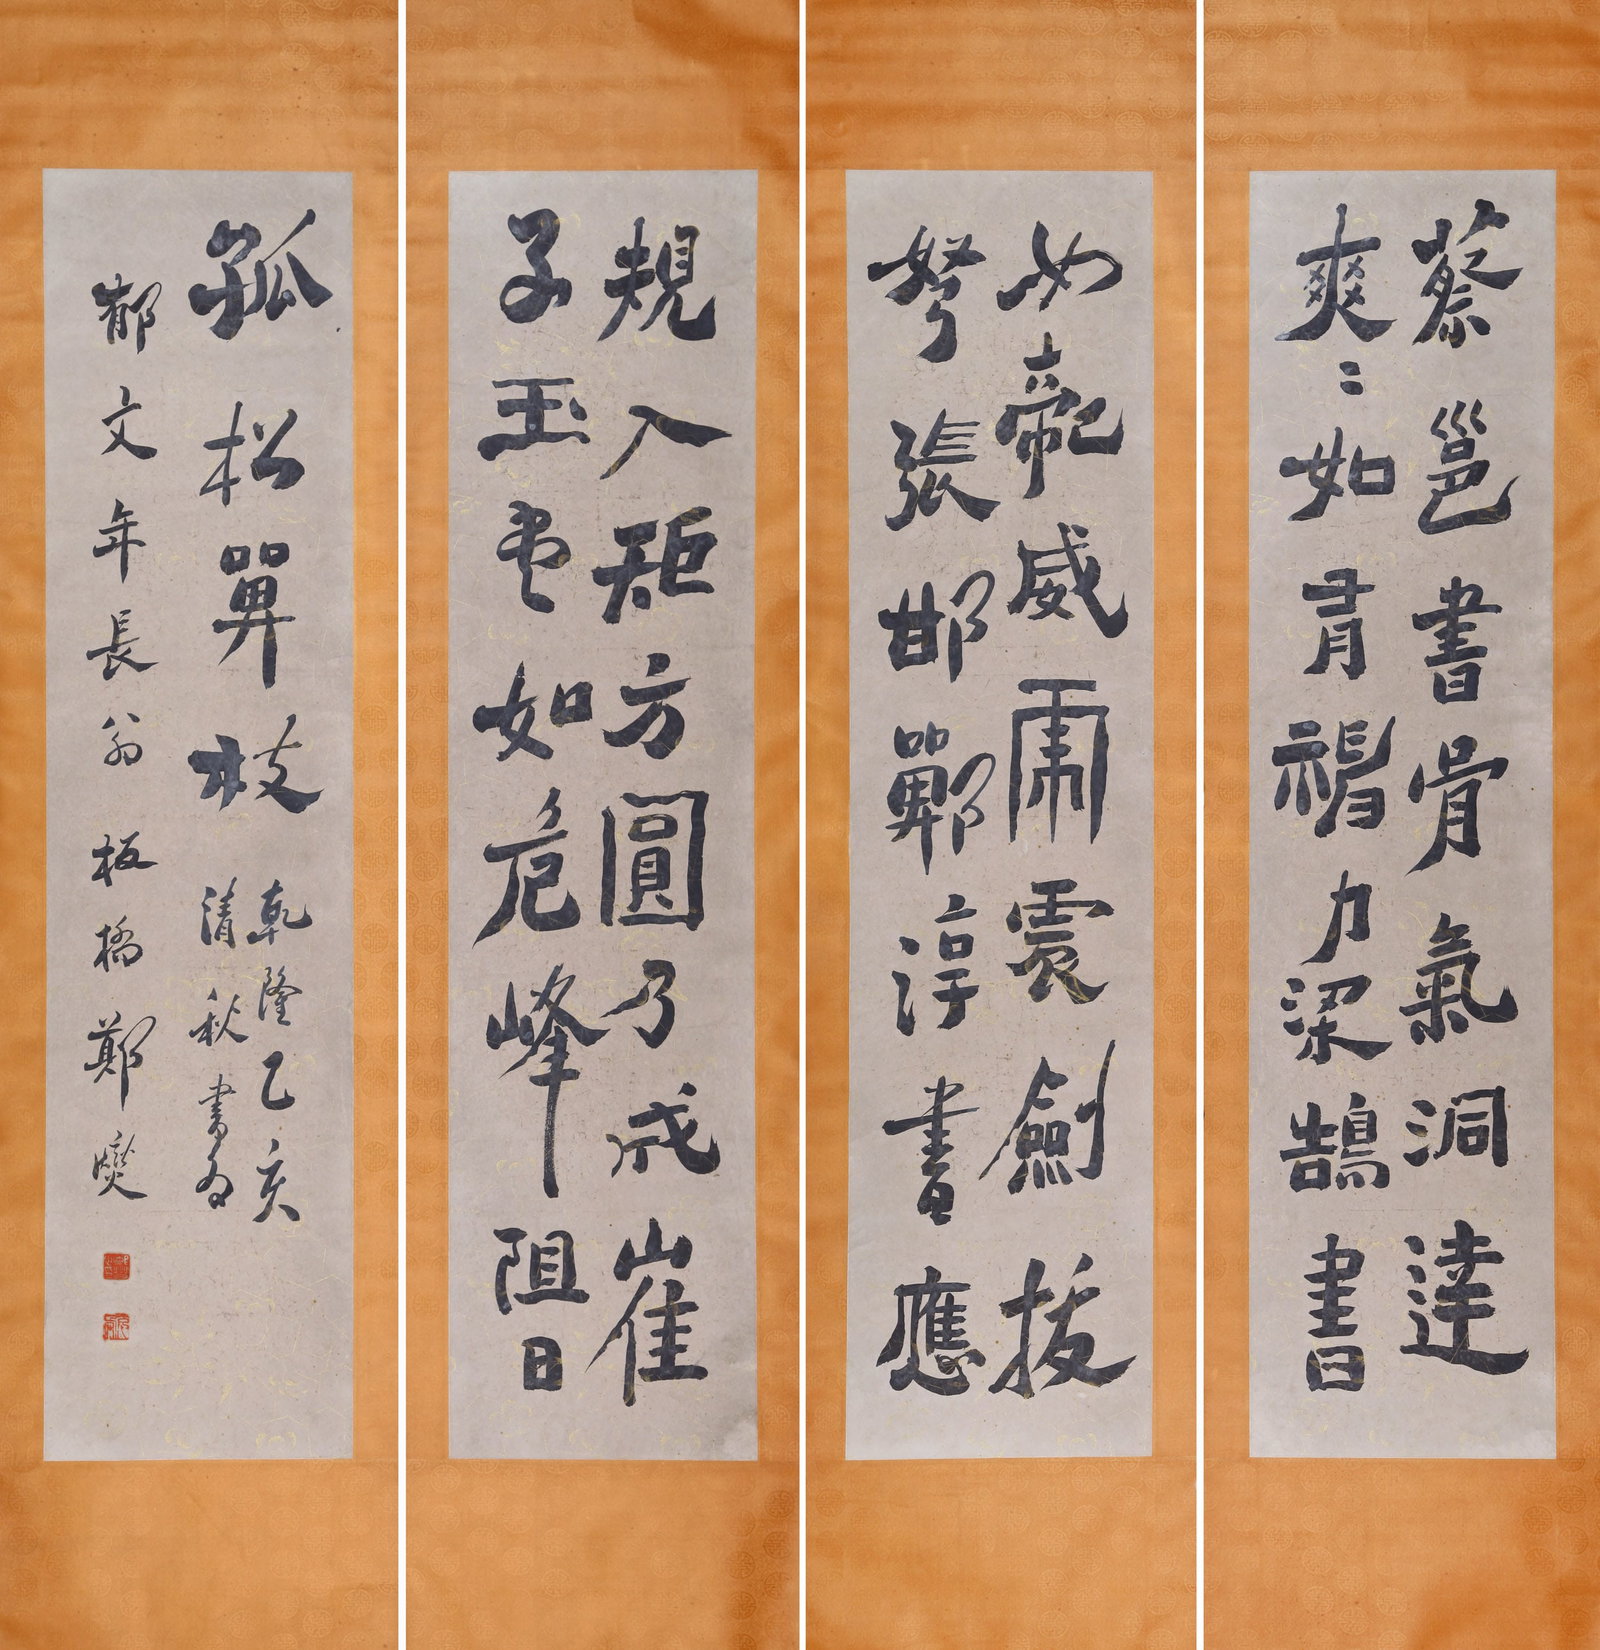 蔡邕書骨氣洞達
爽〻如有神力梁鵠書
如龍威虎震劍拔
弩張邯鄲淳書應
規入矩方圓乃成崔
子玉書如危峰阻日
孤松單枝
乾隆乙亥
清秋書為
郁文年長翁 板橋鄭燮